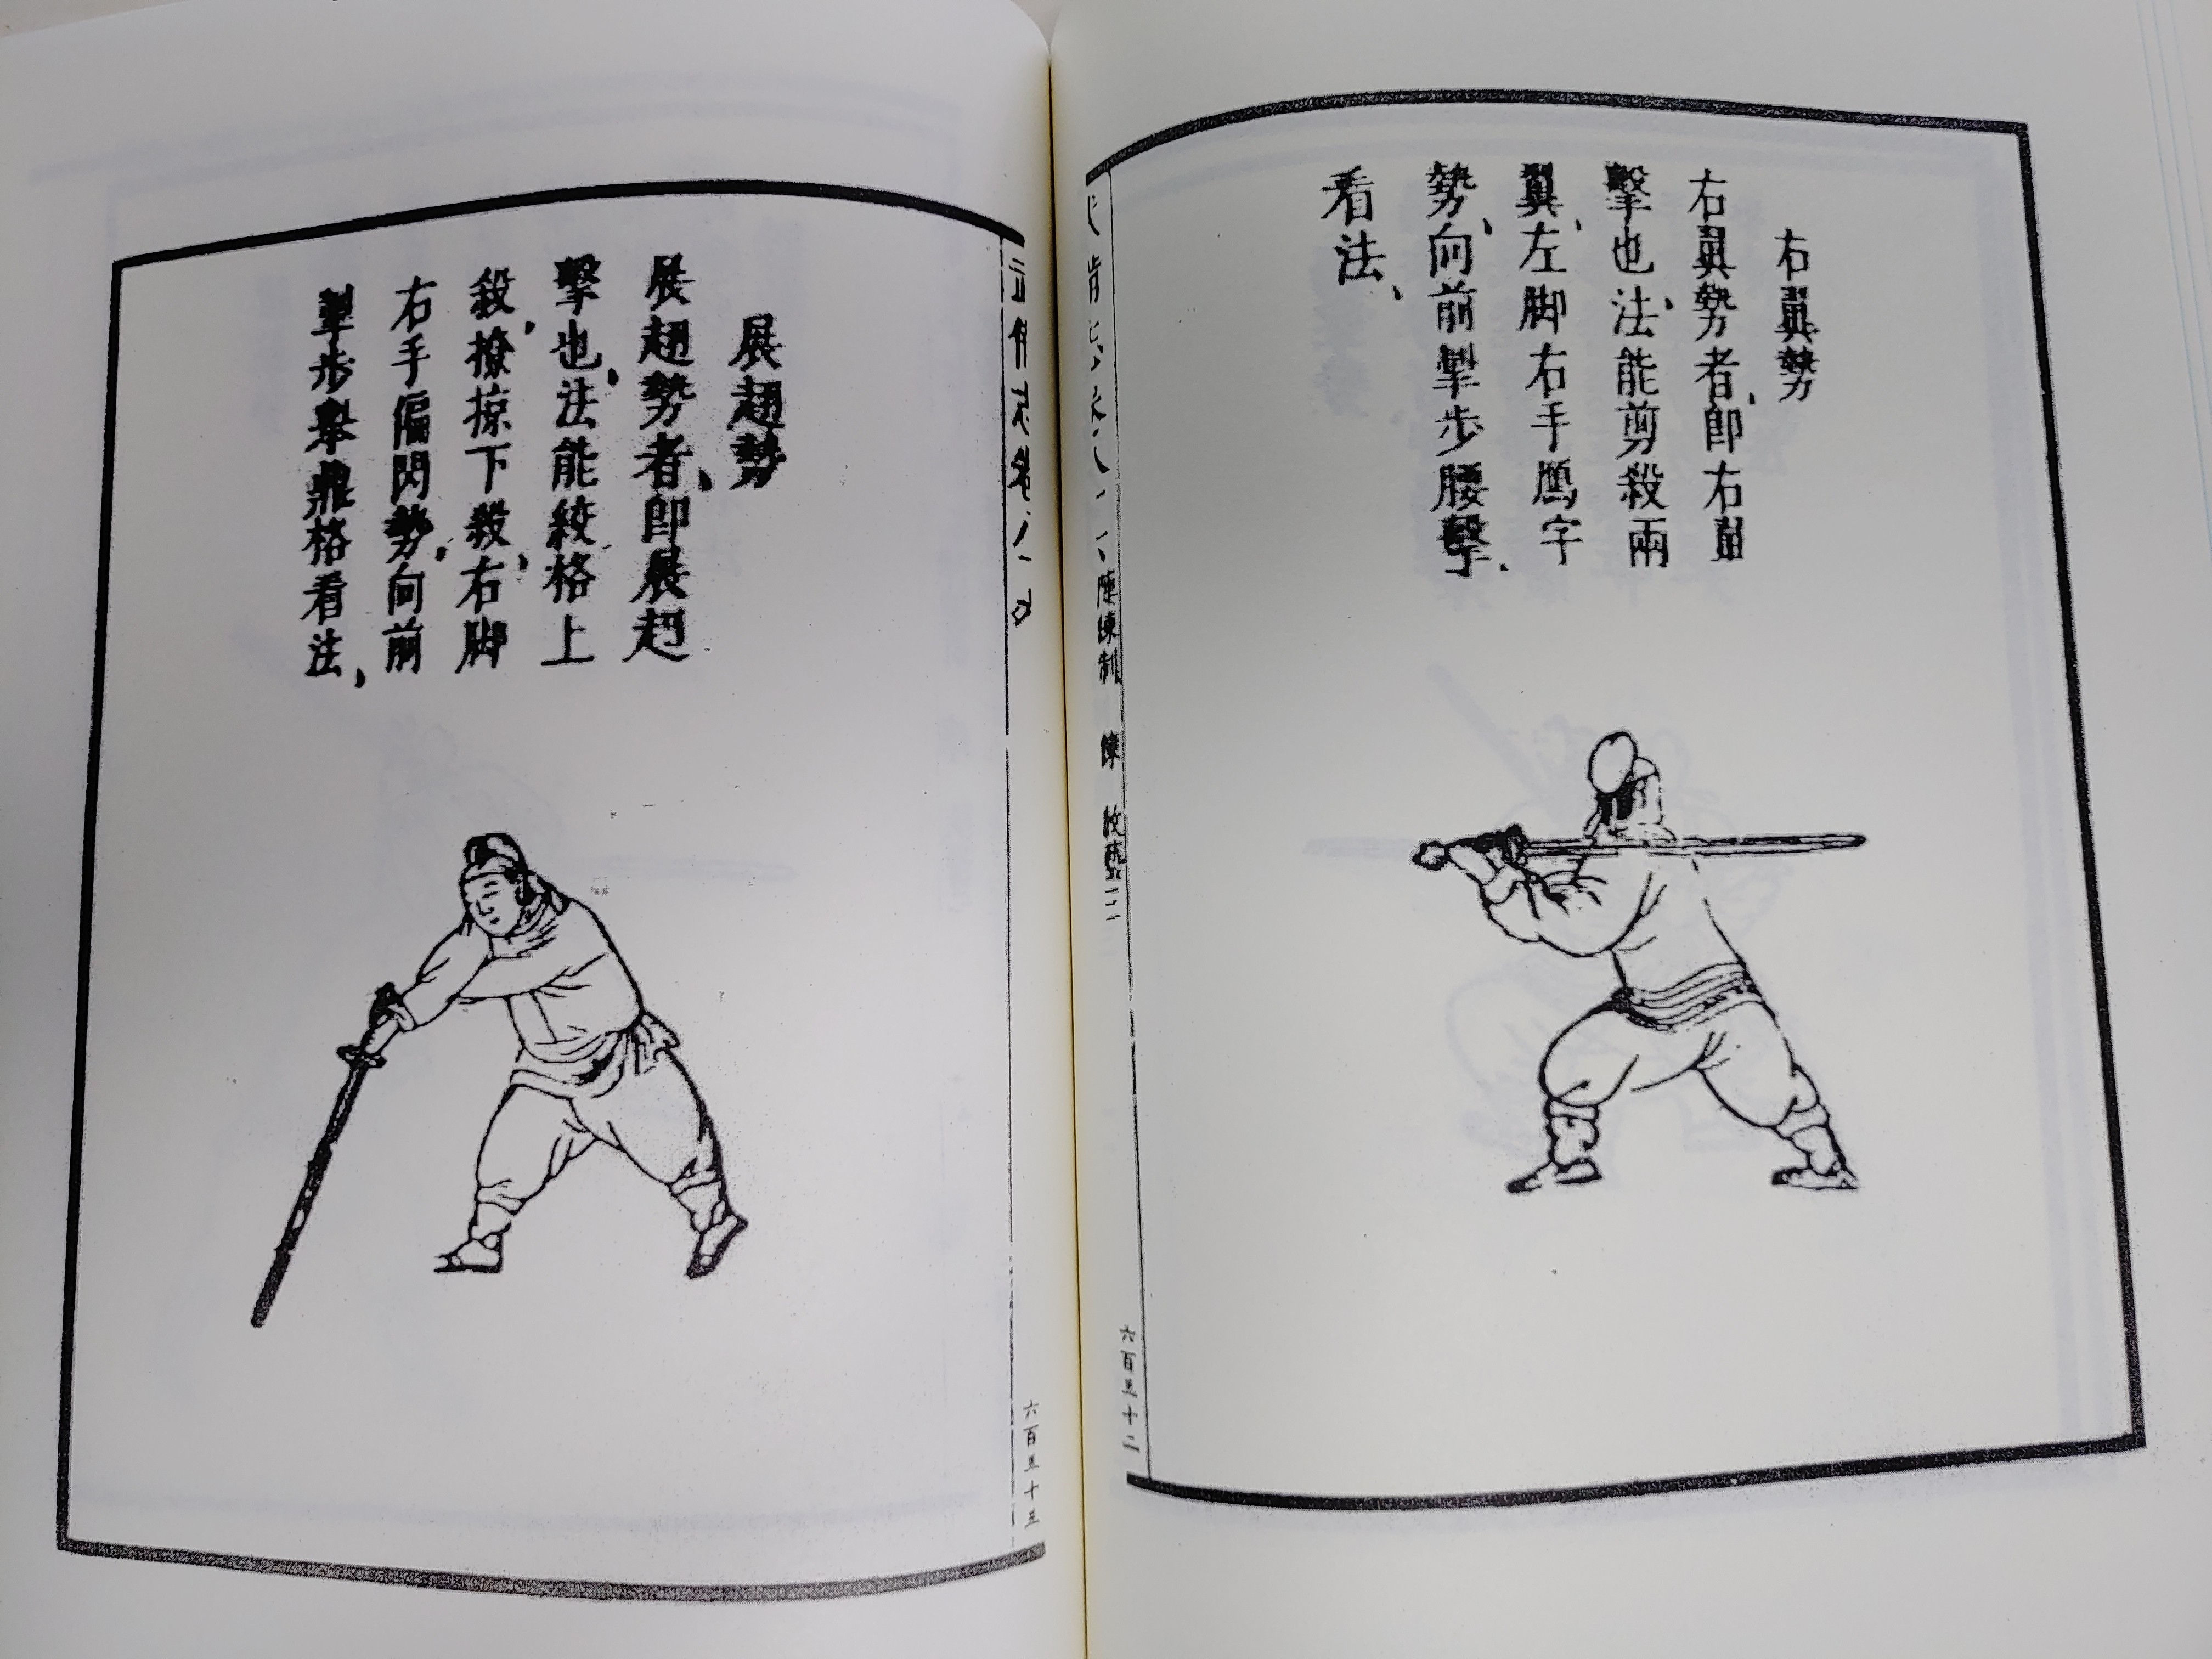 右翼勢
右翼勢者、即右翼
擊也、法能剪殺兩
翼、左脚右手鴈字
勢、向前掣步腰擊、
看法、
陣練制 練 教藝三
六百三十二
六百三十五
展趐勢
展趐勢者、即展趐
擊也、法能絞格上
殺、撩掠下殺、右脚
右手偏閃勢、向前
掣步舉鼎格看法、